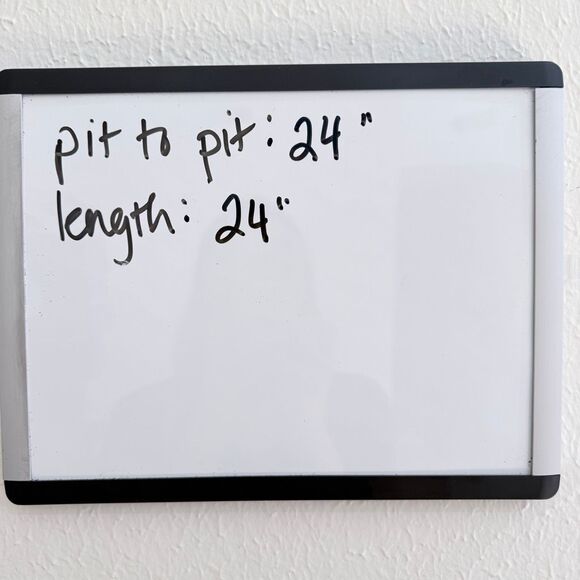 pit to pit: 24"
length: 24"